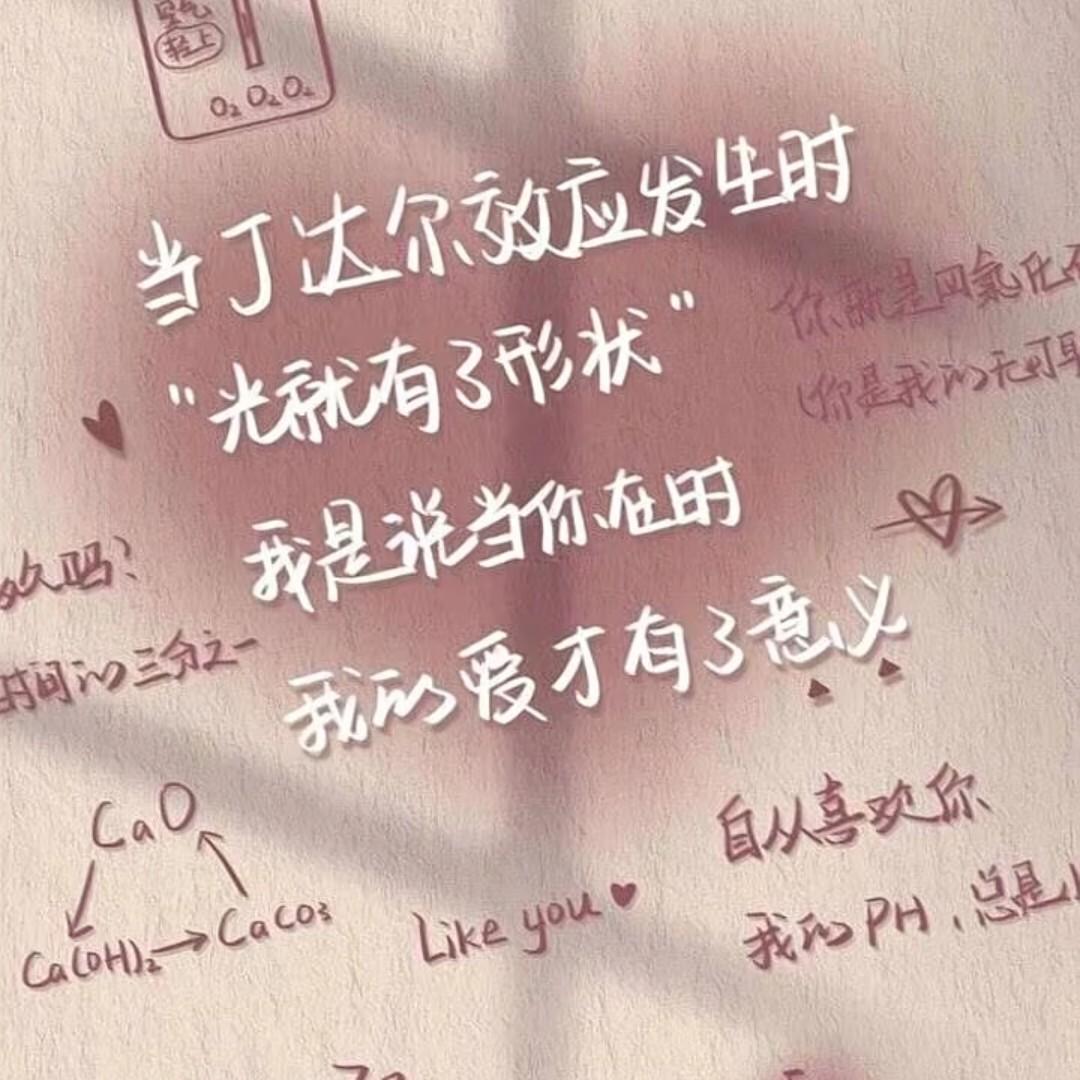 空气
轻上
O₂ O₂ O₂
当丁达尔效应发生时
"光就有了形状"
你就是四氯化
(你是我的无可
我是说当你在时
欢吗?
时间的三分之一
我的爱才有了意义
CaO
Ca(OH)₂→CaCO₃
Like you
自从喜欢你
我的PH,总是小